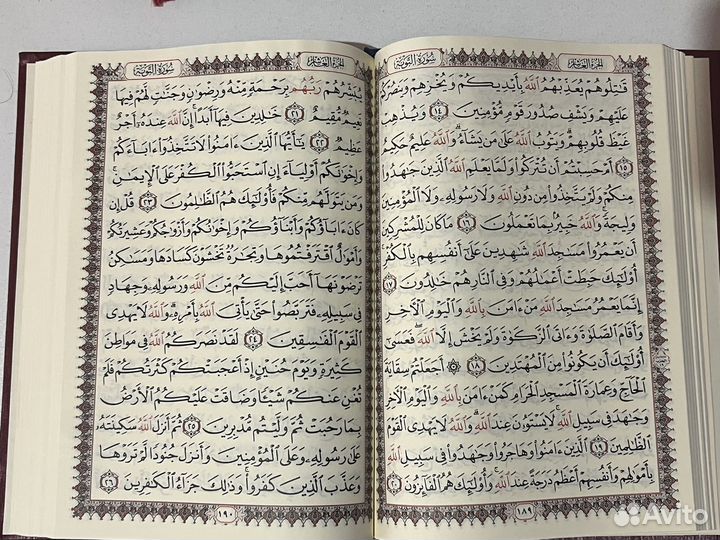 سُورَةُ التَّوْبَةِ
الجُزْءُ العَاشِرُ
قَٰتِلُوهُمْ يُعَذِّبْهُمُ ٱللَّهُ بِأَيْدِيكُمْ وَيُخْزِهِمْ وَيَنصُرْكُمْ
عَلَيْهِمْ وَيَشْفِ صُدُورَ قَوْمٍ مُّؤْمِنِينَ ١٤ وَيُذْهِبْ
غَيْظَ قُلُوبِهِمْ وَيَتُوبُ ٱللَّهُ عَلَىٰ مَن يَشَآءُ وَٱللَّهُ عَلِيمٌ حَكِيمٌ
١٥ أَمْ حَسِبْتُمْ أَن تُتْرَكُوا۟ وَلَمَّا يَعْلَمِ ٱللَّهُ ٱلَّذِينَ جَٰهَدُوا۟
مِنكُمْ وَلَمْ يَتَّخِذُوا۟ مِن دُونِ ٱللَّهِ وَلَا رَسُولِهِۦ وَلَا ٱلْمُؤْمِنِينَ
وَلِيجَةً وَٱللَّهُ خَبِيرٌۢ بِمَا تَعْمَلُونَ ١٦ مَا كَانَ لِلْمُشْرِكِينَ
أَن يَعْمُرُوا۟ مَسَٰجِدَ ٱللَّهِ شَٰهِدِينَ عَلَىٰٓ أَنفُسِهِم بِٱلْكُفْرِ
أُو۟لَٰٓئِكَ حَبِطَتْ أَعْمَٰلُهُمْ وَفِى ٱلنَّارِ هُمْ خَٰلِدُونَ ١٧
إِنَّمَا يَعْمُرُ مَسَٰجِدَ ٱللَّهِ مَنْ ءَامَنَ بِٱللَّهِ وَٱلْيَوْمِ ٱلْءَاخِرِ
وَأَقَامَ ٱلصَّلَوٰةَ وَءَاتَى ٱلزَّكَوٰةَ وَلَمْ يَخْشَ إِلَّا ٱللَّهَ فَعَسَىٰٓ
أُو۟لَٰٓئِكَ أَن يَكُونُوا۟ مِنَ ٱلْمُهْتَدِينَ ١٨ ۞ أَجَعَلْتُمْ سِقَايَةَ
ٱلْحَآجِّ وَعِمَارَةَ ٱلْمَسْجِدِ ٱلْحَرَامِ كَمَنْ ءَامَنَ بِٱللَّهِ وَٱلْيَوْمِ ٱلْءَاخِرِ
وَجَٰهَدَ فِى سَبِيلِ ٱللَّهِ لَا يَسْتَوُۥنَ عِندَ ٱللَّهِ وَٱللَّهُ لَا يَهْدِى ٱلْقَوْمَ
ٱلظَّٰلِمِينَ ١٩ ٱلَّذِينَ ءَامَنُوا۟ وَهَاجَرُوا۟ وَجَٰهَدُوا۟ فِى سَبِيلِ ٱللَّهِ
بِأَمْوَٰلِهِمْ وَأَنفُسِهِمْ أَعْظَمُ دَرَجَةً عِندَ ٱللَّهِ وَأُو۟لَٰٓئِكَ هُمُ ٱلْفَآئِزُونَ ٢٠
١٨٩
الجُزْءُ العَاشِرُ
سُورَةُ التَّوْبَةِ
يُبَشِّرُهُمْ رَبُّهُم بِرَحْمَةٍ مِّنْهُ وَرِضْوَٰنٍ وَجَنَّٰتٍ لَّهُمْ فِيهَا
نَعِيمٌ مُّقِيمٌ ٢١ خَٰلِدِينَ فِيهَآ أَبَدًا إِنَّ ٱللَّهَ عِندَهُۥٓ أَجْرٌ
عَظِيمٌ ٢٢ يَٰٓأَيُّهَا ٱلَّذِينَ ءَامَنُوا۟ لَا تَتَّخِذُوٓا۟ ءَابَآءَكُمْ
وَإِخْوَٰنَكُمْ أَوْلِيَآءَ إِنِ ٱسْتَحَبُّوا۟ ٱلْكُفْرَ عَلَى ٱلْإِيمَٰنِ
وَمَن يَتَوَلَّهُم مِّنكُمْ فَأُو۟لَٰٓئِكَ هُمُ ٱلظَّٰلِمُونَ ٢٣ قُلْ إِن
كَانَ ءَابَآؤُكُمْ وَأَبْنَآؤُكُمْ وَإِخْوَٰنُكُمْ وَأَزْوَٰجُكُمْ وَعَشِيرَتُكُمْ
وَأَمْوَٰلٌ ٱقْتَرَفْتُمُوهَا وَتِجَٰرَةٌ تَخْشَوْنَ كَسَادَهَا وَمَسَٰكِنُ
تَرْضَوْنَهَآ أَحَبَّ إِلَيْكُم مِّنَ ٱللَّهِ وَرَسُولِهِۦ وَجِهَادٍ
فِى سَبِيلِهِۦ فَتَرَبَّصُوا۟ حَتَّىٰ يَأْتِىَ ٱللَّهُ بِأَمْرِهِۦ وَٱللَّهُ لَا يَهْدِى
ٱلْقَوْمَ ٱلْفَٰسِقِينَ ٢٤ لَقَدْ نَصَرَكُمُ ٱللَّهُ فِى مَوَاطِنَ
كَثِيرَةٍ وَيَوْمَ حُنَيْنٍ إِذْ أَعْجَبَتْكُمْ كَثْرَتُكُمْ فَلَمْ
تُغْنِ عَنكُمْ شَيْـًٔا وَضَاقَتْ عَلَيْكُمُ ٱلْأَرْضُ
بِمَا رَحُبَتْ ثُمَّ وَلَّيْتُم مُّدْبِرِينَ ٢٥ ثُمَّ أَنزَلَ ٱللَّهُ سَكِينَتَهُۥ
عَلَىٰ رَسُولِهِۦ وَعَلَى ٱلْمُؤْمِنِينَ وَأَنزَلَ جُنُودًا لَّمْ تَرَوْهَا
وَعَذَّبَ ٱلَّذِينَ كَفَرُوا۟ وَذَٰلِكَ جَزَآءُ ٱلْكَٰفِرِينَ ٢٦
١٩٠
Avito